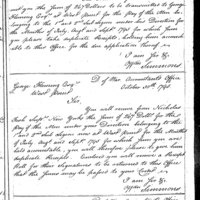 and you the Sum of 267 Dollars to be transmitted to George
Fleming Esqr at West Point for the pay of the Men be-
longing to the 1st and 2nd under your Direction for
the Months of July, Augt and Sept 1795 for which Sum
you will please duplicate Receipts, holding him account-
able to this Office for the due application thereof.
I am Sir &c
Wm Simmons
George Fleming Esqr
West Point
D. of War Accountants Office
October 20th 1795
Sir,
You will receive from Nicholas
New York the Sum of 267 Dolls for the
Pay of the Men under your Direction belonging to the
1st and 2nd now at West Point for the Months
of July, Augt and Sept 1795 for which Sum you are
held accountable, you will therefore please to give him
duplicate Receipts. Enclosed you will receive a Receipt
Roll for their signatures to be returned to this Office
that the Sum may be passed to your Credit
I am Sir &c
Wm Simmons